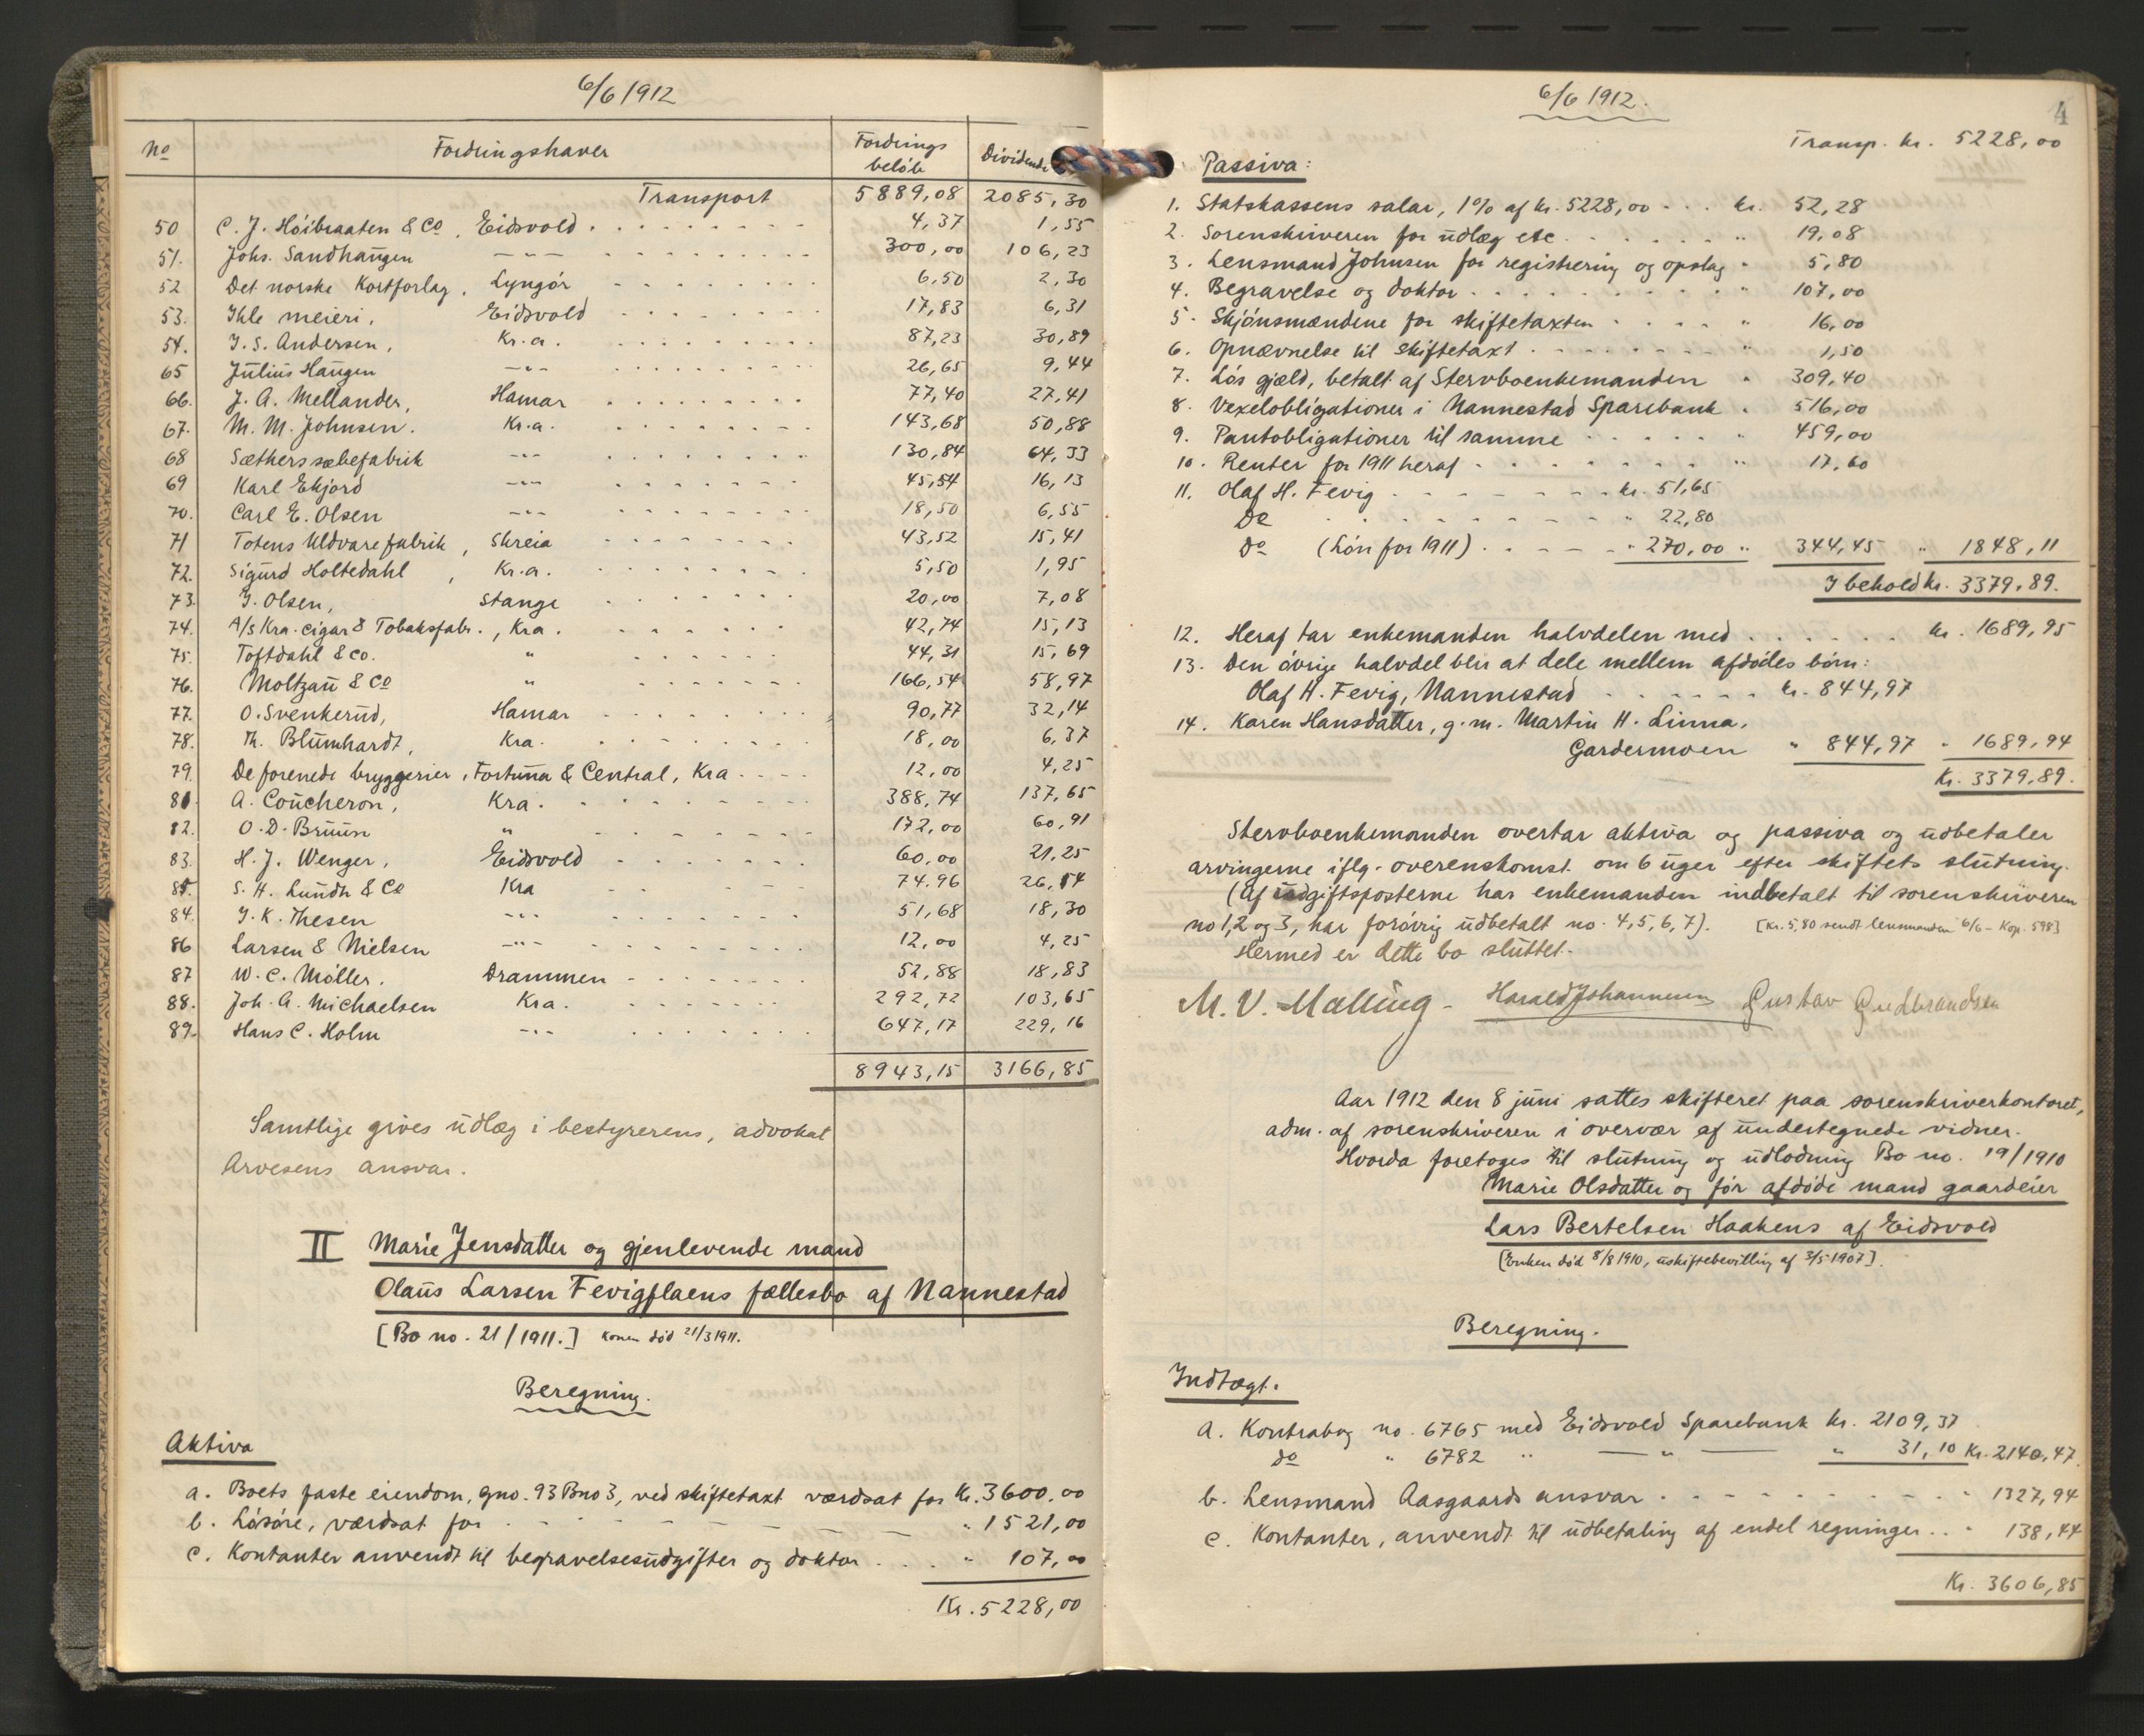 6/6 1912
No Fordringshaver Fordringsbeløb Dividende
Transport 5889,08 2085,30
50 C. J. Høibraaten & Co, Eidsvold. 4,37 1,55
51. Johs. Sandhaugen -"- 300,00 106,23
52 Det norske Kortforlag, Lyngør 6,50 2,30
53. Ihle meieri, Eidsvold 17,83 6,31
54. J. S. Andersen, Kr.a. 87,23 30,89
65 Julius Haugen -"- 26,65 9,44
66. J. A. Mellander, Hamar 77,40 27,41
67. M. M. Johnsen. Kr.a. 143,68 50,88
68 Sæthers sæbefabrik -"- 130,84 64,33
69 Karl Ekjord -"- 45,54 16,13
70. Carl E. Olsen -"- 18,50 6,55
71 Totens Uldvarefabrik, Skreia 43,52 15,41
72. Sigurd Holtedahl, Kr.a. 5,50 1,95
73. J. Olsen, Stange 20,00 7,08
74. A/s Kra. cigar & Tobaksfabr., Kra. 42,74 15,13
75. Toftdahl & co. " 44,31 15,69
76. Moltzau & Co " 166,54 58,97
77. O. Svenkerud, Hamar 90,77 32,14
78. Th. Blumhardt, Kra. 18,00 6,37
79. De forenede bryggerier, Fortuna & Central, Kra 12,00 4,25
81. A. Coucheron, Kra. 388,74 137,65
82. O. D. Bruun " 172,00 60,91
83. H. J. Wenger, Eidsvold 60,00 21,25
85. S. H. Lundh & Co Kra 74.96 26,54
84. J. K. Thesen -"- 51,68 18,30
86 Larsen & Nielsen -"- 12,00 4,25
87 W. C. Møller. Drammen 52,88 18,83
88. Joh. A. Michaelsen Kra. 292,72 103,65
89. Hans C. Holm -"- 647,17 229,16
8943,15 3166,85
Samtlige gives udlæg i bestyrerens, advokat
Arvesens ansvar.
II Marie Jensdatter og gjenlevende mand
Olaus Larsen Fevigflaens fællesbo af Nannestad
[Bo no. 21/1911.] Konen død 21/3 1911.
Beregning.
Aktiva
a. Boets faste eiendom, gno. 93 Bno 3, ved skiftetaxt værdsat for Kr. 3600,00
b. Løsøre, værdsat for " 1521,00
c. Kontanter anvendt til begravelsesudgifter og doktor " 107,00
Kr. 5228,00
6/6 1912.
4
Transp. kr. 5228,00
Passiva:
1. Statskassens salar, 1% af kr. 5228,00 kr. 52,28
2. Sorenskriveren for udlæg etc " 19,08
3. Lensmand Johnsen for registrering og opslag " 5,80
4. Begravelse og doktor " 107,00
5. Skjønsmændene for skiftetaxten " 16,00
6. Opnævnelse til skiftetaxt " 1,50
7. Løs gjæld, betalt af Stervboenkemanden " 309,40
8. Vexelobligationer i Nannestad Sparebank " 516,00
9. Pantobligationer til samme " 459,00
10. Renter for 1911 heraf " 17,60
11. Olaf H. Fevig kr. 51,65
Do " 22,80
Do (Løn for 1911) " 270,00 " 344,45 " 1848,11
I behold kr. 3379,89.
12. Heraf tar enkemanden halvdelen med kr. 1689,95
13. Den øvrige halvdel blir at dele mellem afdødes børn:
Olaf H. Fevig, Nannestad kr. 844,97
14. Karen Hansdatter, g.m. Martin H. Linna,
Gardermoen " 844,97 " 1689,94
Kr. 3379,89.
Stervboenkemanden overtar aktiva og passiva og udbetaler
arvingerne iflg. overenskomst om 6 uger efter skiftets slutning.
(Af udgiftsposterne har enkemanden indbetalt til sorenskriveren
no 1, 2 og 3, har forøvrig udbetalt no. 4, 5, 6, 7). [Kr. 5,80 sendt lensmanden 6/6 - Kop. 598]
Hermed er dette bo sluttet.
M. V. Malling - Harald Johannesen Gustav Gudbrandsen
Aar 1912 den 8 juni sattes skifteret paa sorenskriverkontoret,
adm. af sorenskriveren i overvær af undertegnede vidner.
Hvorda foretoges til slutning og udlodning Bo no. 19/1910
Marie Olsdatter og før afdøde mand gaardeier
Lars Bertelsen Haakens af Eidsvold
[Enken død 8/8 1910, uskiftebevilling af 3/5 1907].
Beregning.
Indtægt.
a. Kontrabog no. 6765 med Eidsvold Sparebank kr. 2109,37
do " 6782 " — " — " 31,10 Kr. 2140,47.
b. Lensmand Aasgaards ansvar " 1327,94
c. Kontanter, anvendt til udbetaling af endel regninger " 138,44
Kr. 3606,85